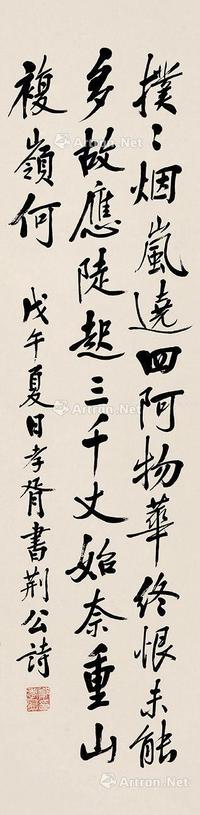 撲〻烟嵐遶四阿物華終恨未能
多故應陡起三千丈始奈重山
複嶺何
戊午夏日孝胥書荊公詩